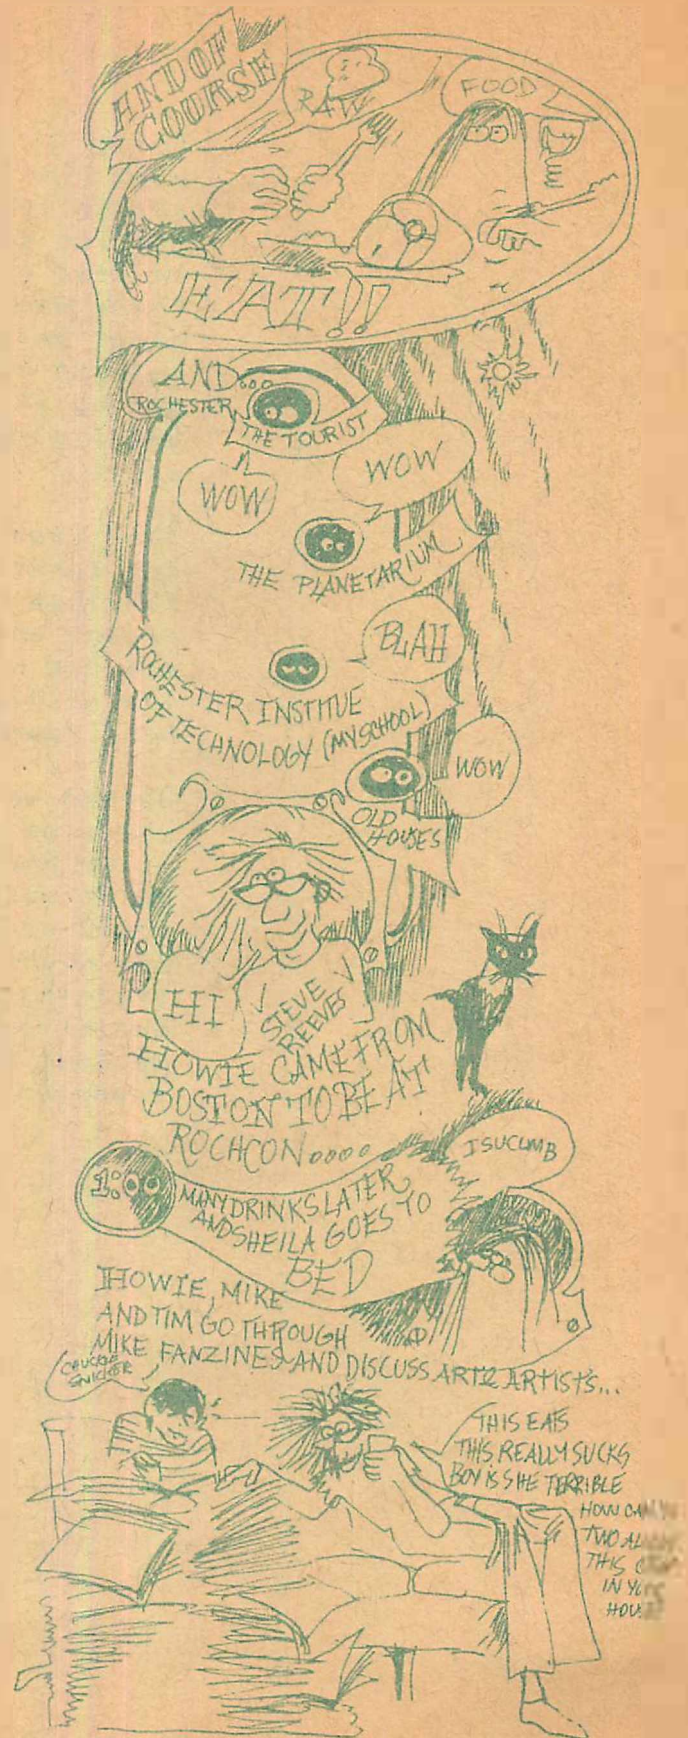 AND OF
COURSE
RAW
FOOD
EAT!!
AND...
ROCHESTER
THE TOURIST
WOW
WOW
THE PLANETARIUM
BLAH
ROCHESTER INSTITUE
OF TECHNOLOGY (MY SCHOOL)
WOW
OLD
HOUSES
HI
STEVE
REEVES
HOWIE CAME FROM
BOSTON TO BE AT
ROCHCON....
I SUCUMB
1:00
MANY DRINKS LATER
AND SHEILA GOES TO
BED
HOWIE, MIKE
AND TIM GO THROUGH
MIKE FANZINES AND DISCUSS ART & ARTISTS...
CHUCKLE
SNICKER
THIS EATS
THIS REALLY SUCKS
BOY IS SHE TERRIBLE
HOW CAN
TWO
THIS
IN